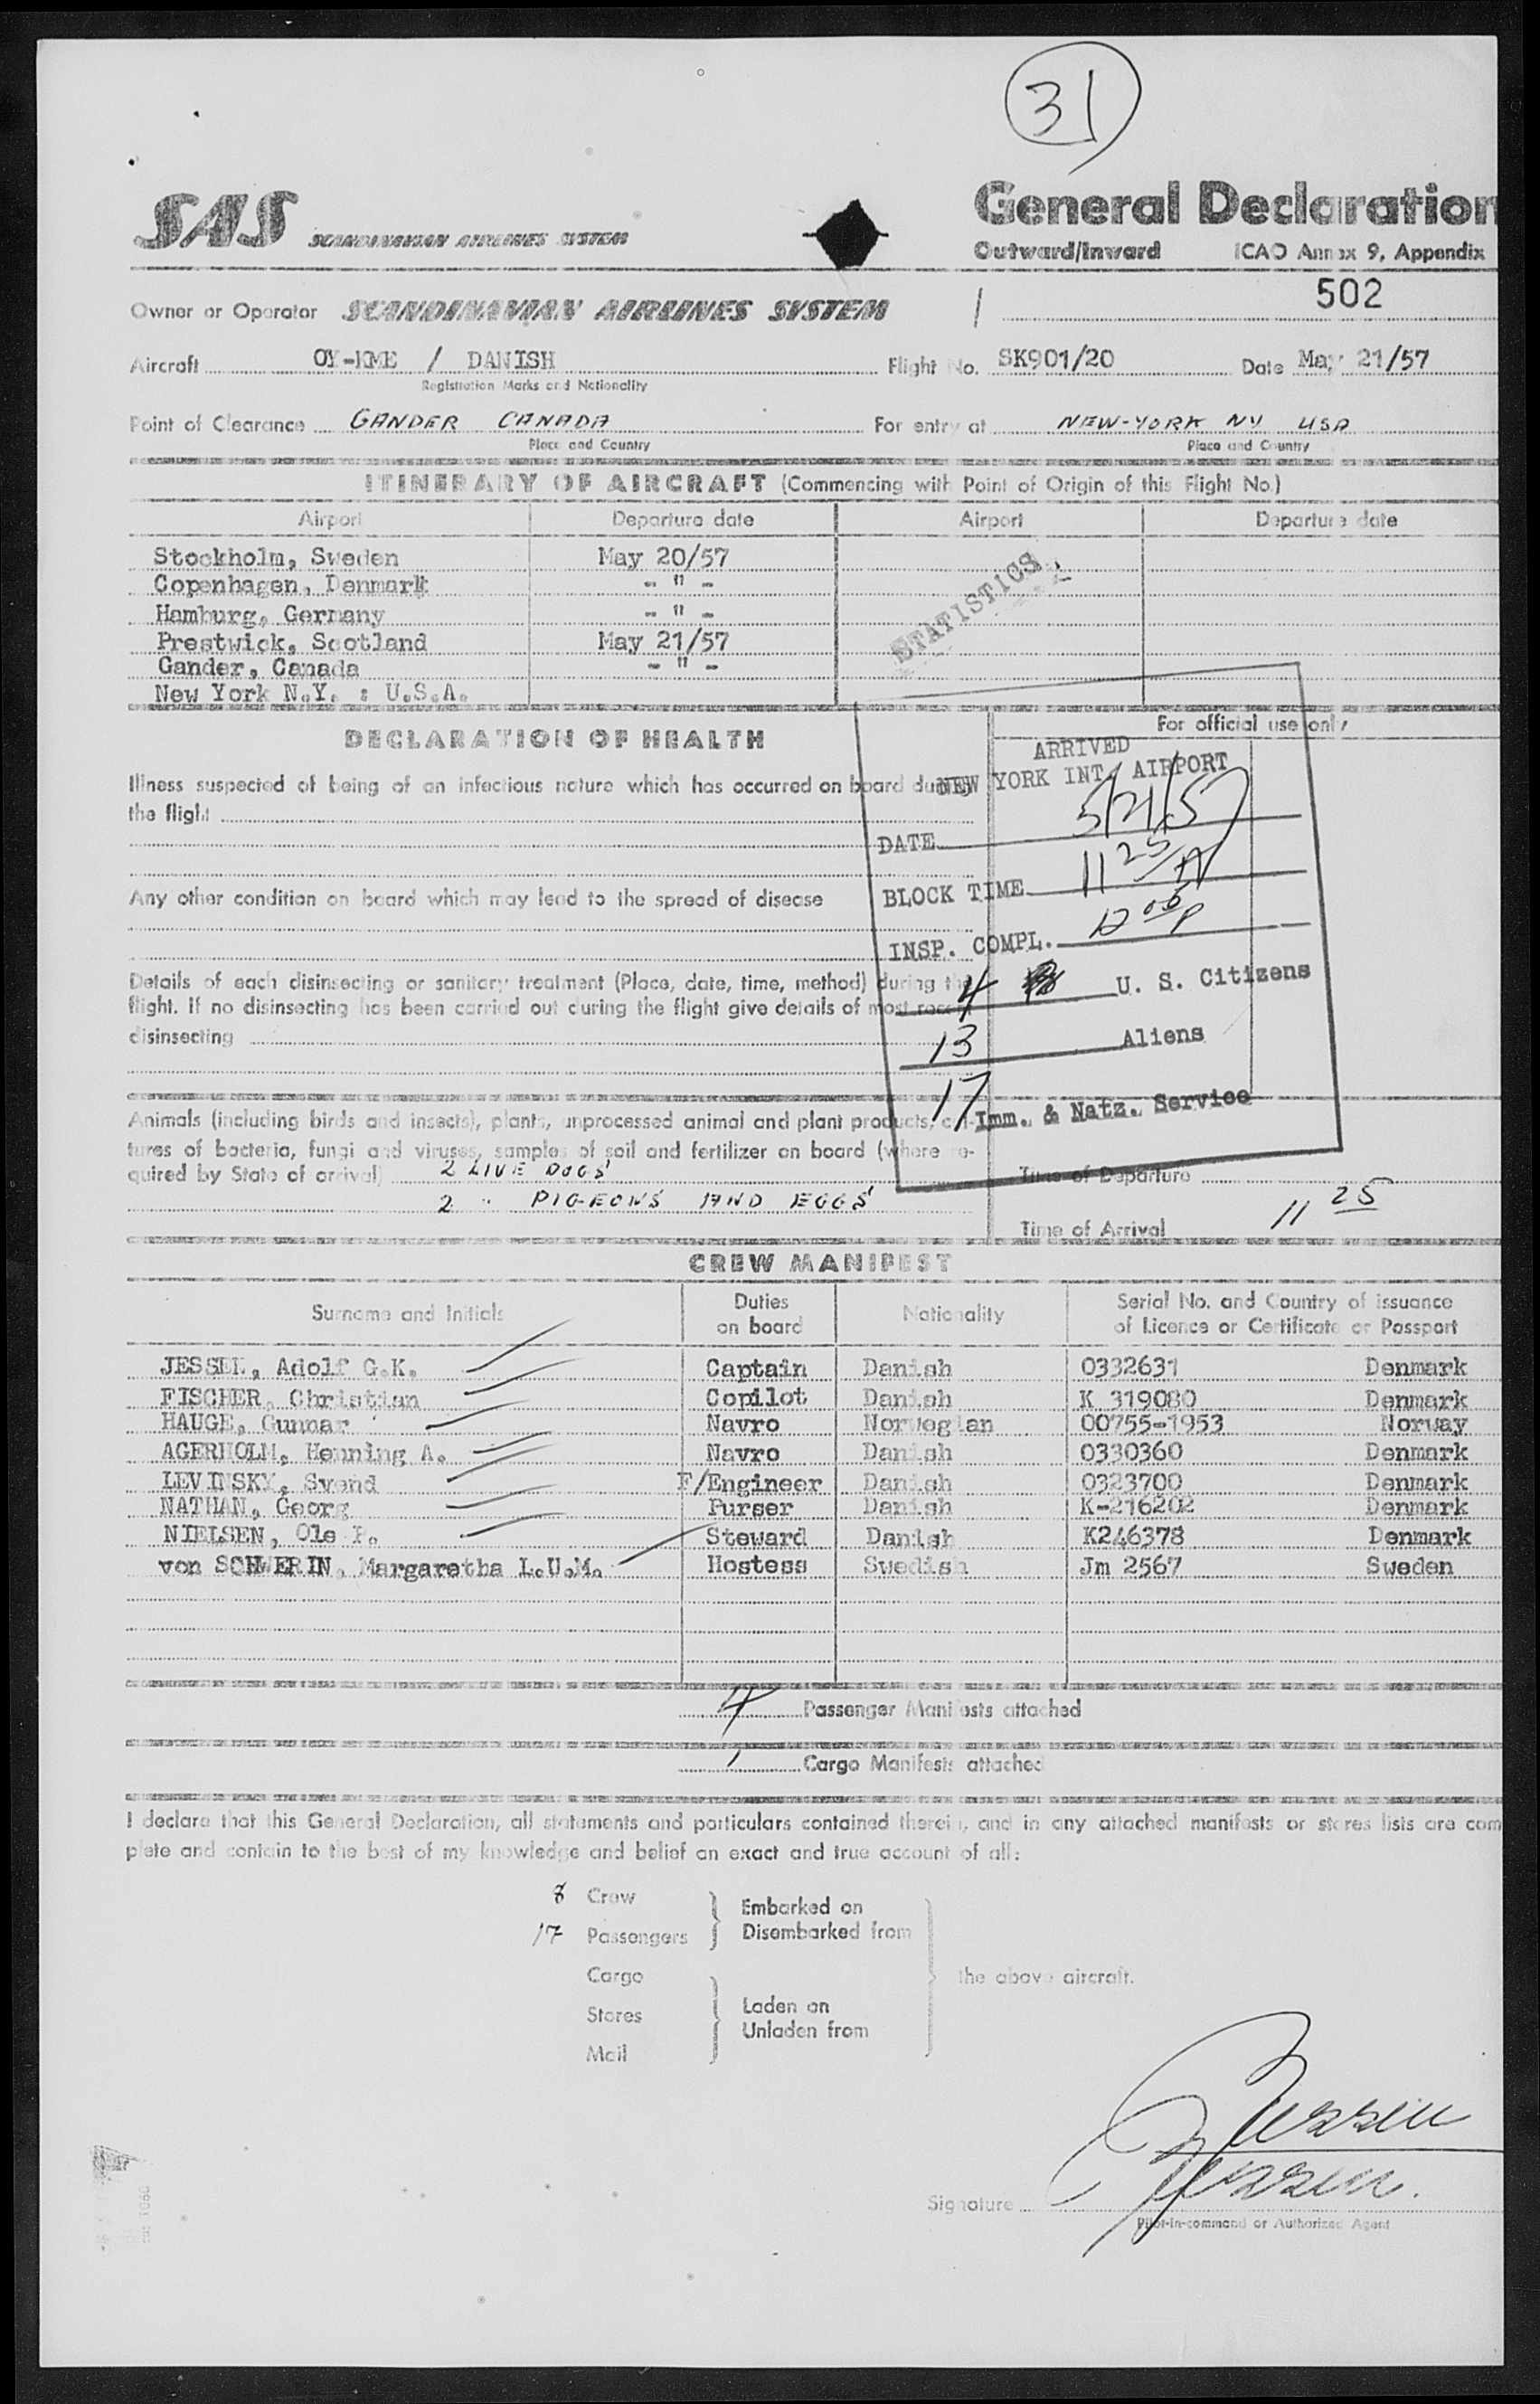 31
SAS SCANDINAVIAN AIRLINES SYSTEM
General Declaration
Outward/Inward ICAO Annex 9, Appendix
502
Owner or Operator SCANDINAVIAN AIRLINES SYSTEM
Aircraft OY-KME / DANISH Flight No. SK901/20 Date May 21/57
Registration Marks and Nationality
Point of Clearance GANDER CANADA For entry at NEW-YORK NY USA
Place and Country Place and Country
ITINERARY OF AIRCRAFT (Commencing with Point of Origin of this Flight No.)
Airport Departure date Airport Departure date
Stockholm, Sweden May 20/57
Copenhagen, Denmark - " -
Hamburg, Germany - " -
Prestwick, Scotland May 21/57
Gander, Canada - " -
New York N.Y. : U.S.A.
STATISTICS
DECLARATION OF HEALTH
For official use only
Illness suspected of being of an infectious nature which has occurred on board during
the flight
Any other condition on board which may lead to the spread of disease
Details of each disinsecting or sanitary treatment (Place, date, time, method) during the
flight. If no disinsecting has been carried out during the flight give details of most recent
disinsecting
ARRIVED
NEW YORK INT. AIRPORT
DATE 5/21/57
BLOCK TIME 11 25/A
INSP. COMPL. 12 00 P
4 U. S. Citizens
13 Aliens
17 Imm. & Natz. Service
Animals (including birds and insects), plants, unprocessed animal and plant products, cul-
tures of bacteria, fungi and viruses, samples of soil and fertilizer on board (where re-
quired by State of arrival) 2 LIVE DOGS
2 " PIGEONS AND EGGS
Time of Departure
Time of Arrival 11 25
CREW MANIFEST
Surname and Initials Duties on board Nationality Serial No. and Country of issuance of Licence or Certificate or Passport
JESSEN, Adolf G.K. Captain Danish 0332631 Denmark
FISCHER, Christian Copilot Danish K 319080 Denmark
HAUGE, Gunnar Navro Norwegian 00755-1953 Norway
AGERHOLM, Henning A. Navro Danish 0330360 Denmark
LEVINSKY, Svend F/Engineer Danish 0323700 Denmark
NATHAN, Georg Purser Danish K-216202 Denmark
NIELSEN, Ole P. Steward Danish K246378 Denmark
von SCHWERIN, Margaretha L.U.M. Hostess Swedish Jm 2567 Sweden
4 Passenger Manifests attached
1 Cargo Manifests attached
I declare that this General Declaration, all statements and particulars contained therein, and in any attached manifests or stores lists are com
plete and contain to the best of my knowledge and belief an exact and true account of all:
8 Crew
17 Passengers
Embarked on
Disembarked from
Cargo
Stores
Mail
Laden on
Unladen from
the above aircraft.
Jessen
Jessen.
Signature
Pilot-in-command or Authorized Agent